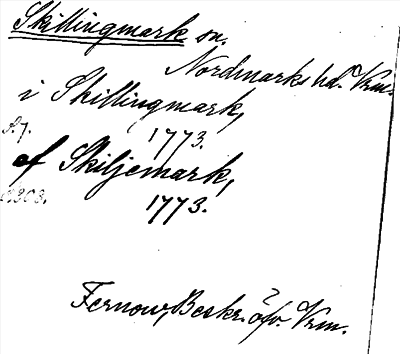 Skillingmark sn.
Nordmarks hd. Vrm.
i Skillingmark,
s. 7. 1773.
af Skiljemark,
s. 303. 1773.
Fernow, Beskr. öfv. Vrm.